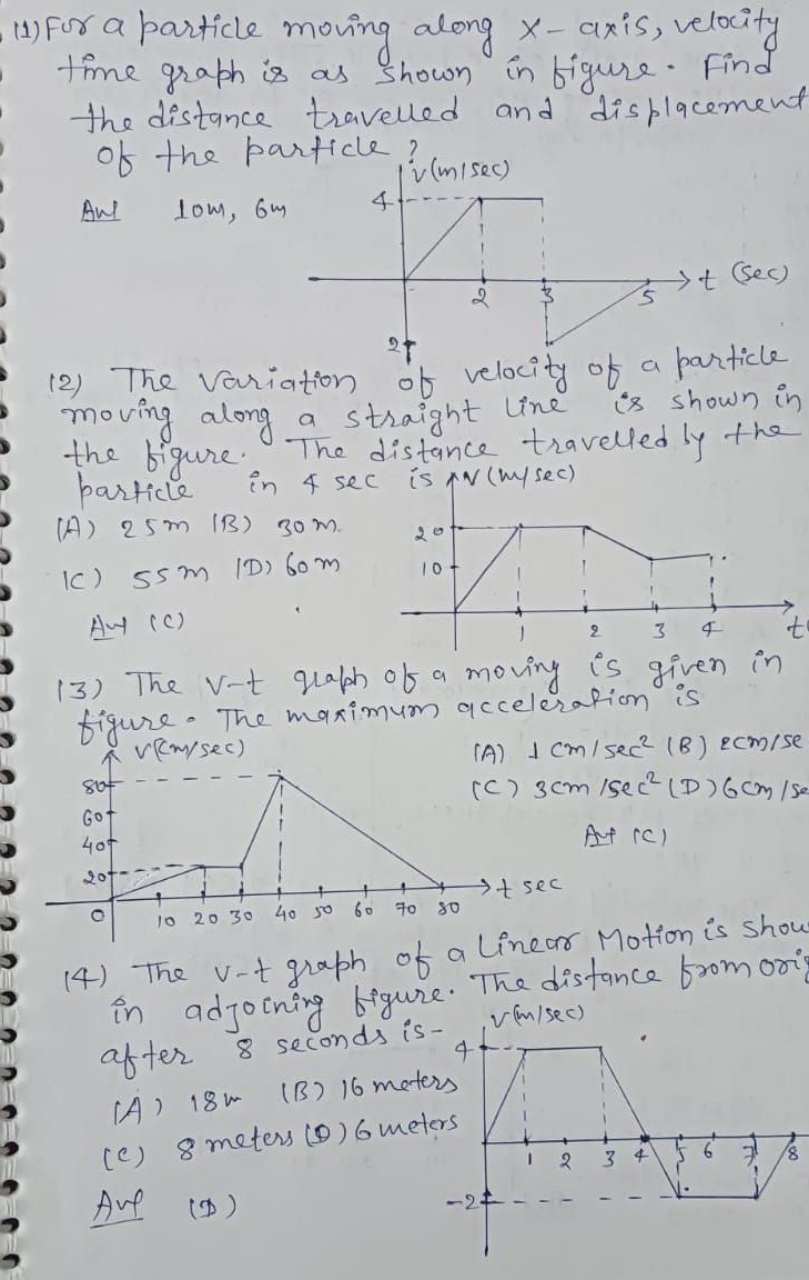 (1) For a particle moving along x-axis, velocity
time graph is as shown in figure. Find
the distance travelled and displacement
of the particle?
Ans 10m, 6m
v(m/sec)
4
2 3 5 t (sec)
2
(2) The variation of velocity of a particle
moving along a straight line is shown in
the figure. The distance travelled by the
particle in 4 sec is
v(m/sec)
(A) 25m (B) 30m
(C) 55m (D) 60m
Ans (C)
20
10
1 2 3 4 t
(3) The v-t graph of a moving is given in
figure. The maximum acceleration is
v(cm/sec)
(A) 1 cm/sec² (B) 2cm/se
(C) 3cm/sec² (D) 6cm/se
Ans (C)
80
60
40
20
0 10 20 30 40 50 60 70 80 t sec
(4) The v-t graph of a Linear Motion is show
in adjoining figure. The distance from orig
after 8 seconds is-
v(m/sec)
(A) 18m (B) 16 meters
(C) 8 meters (D) 6 meters
Ans (D)
4
1 2 3 4 5 6 7 8
-2